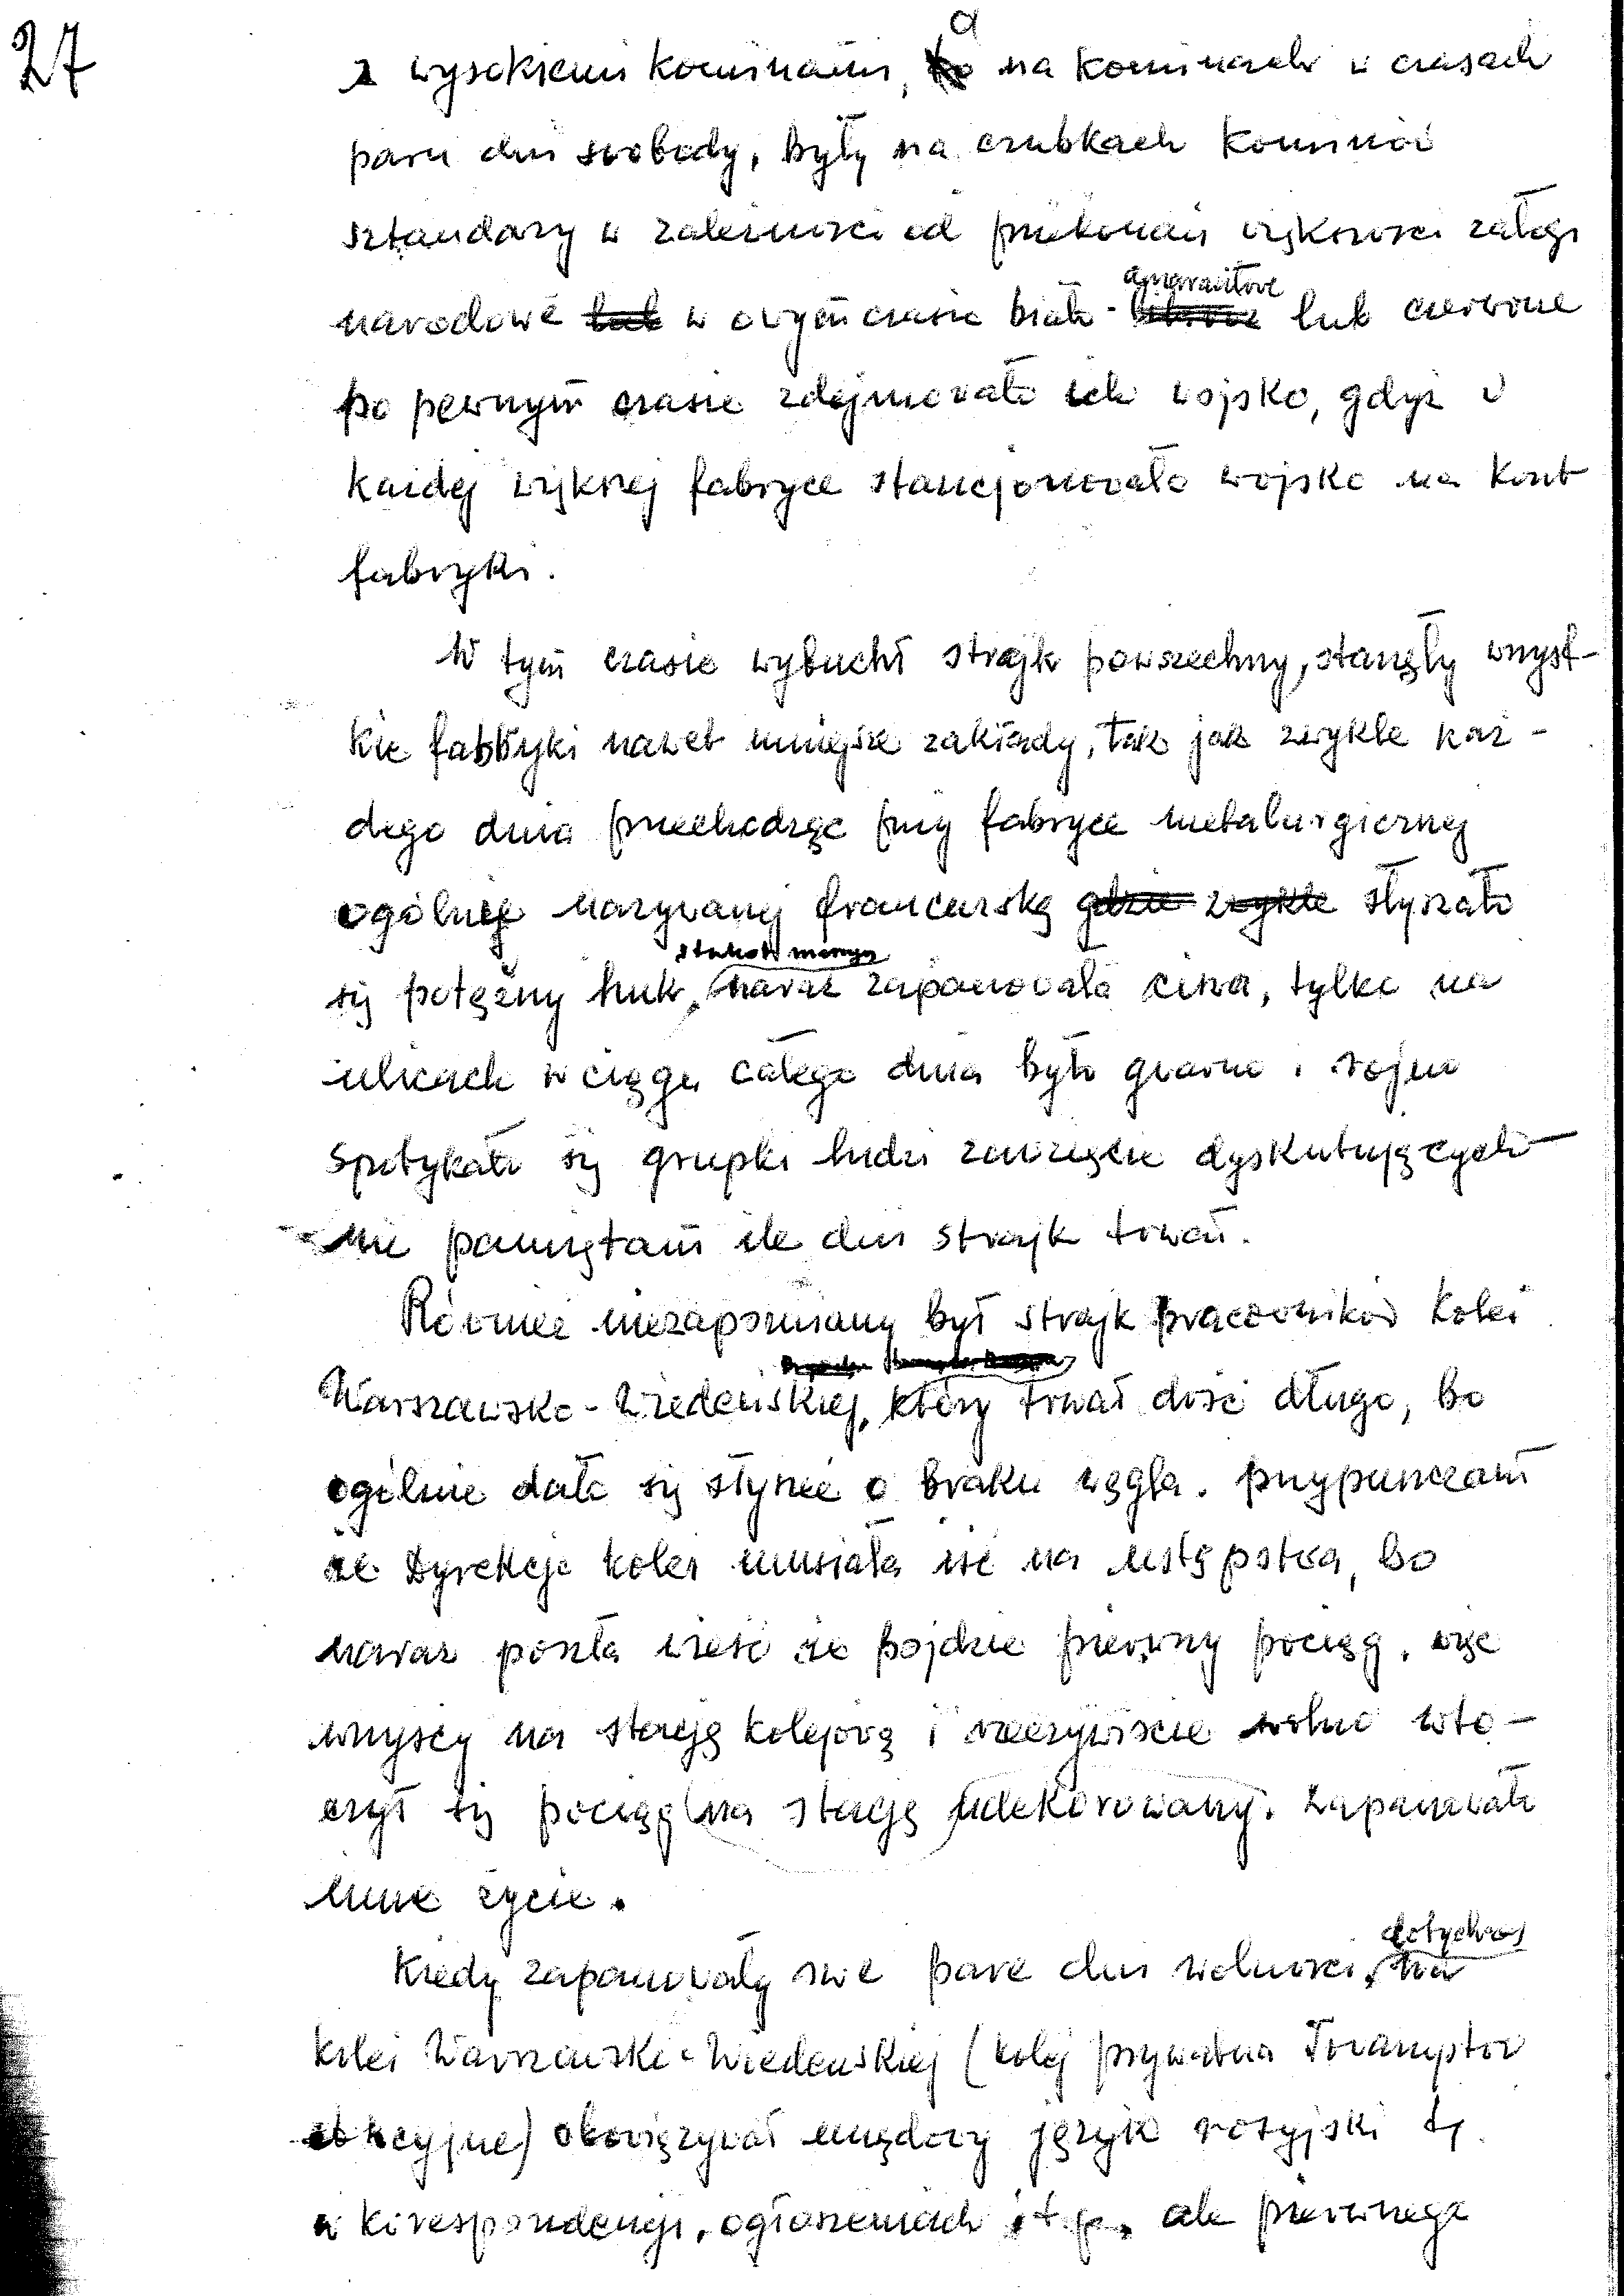 27
z wysokiemi kominami, a na kominach w czasach
paru dni swobody, były na czubkach kominów
sztandary w zależności od przekonań większości załogi
narodowe w owym czasie biało-amarantowe lub czerwone
po pewnym czasie zdejmowało ich wojsko, gdyż w
każdej większej fabryce stancjonowało wojsko na koszt
fabryki.
W tym czasie wybuchł strajk powszechny, stanęły wszyst-
kie fabryki nawet mniejsze zakłady, tak jak zwykle każ-
dego dnia przechodząc przy fabryce metalurgicznej
ogólnie nazywanej francuską gdzie zwykle słyszało
się potężny huk, stukot maszyn naraz zapanowała cisza, tylko na
ulicach w ciągu całego dnia było gwarno i rojno
spotykało się grupki ludzi zawzięcie dyskutujących -
nie pamiętam ile dni strajk trwał.
Również niezapomniany był strajk pracowników Kolei
Warszawsko-Wiedeńskiej, który trwał dość długo, bo
ogólnie dało się słyszeć o braku węgla. przypuszczam
że Dyrekcja kolei musiała iść na ustępstwa, bo
naraz poszła wieść że pojdzie pierwszy pociąg, więc
wszyscy na stację kolejową i rzeczywiście wolno wto-
czył się pociąg na stację udekorowany. Zapanowało
inne życie.
Kiedy zapanowały swe pare dni wolności, dotychczas na
kolei Warszawsko-Wiedeńskiej (kolej prywatna Towarzystw
akcyjne) obowiązywał urzędowy język rosyjski tj.
w korespondencji, ogłoszeniach i t.p. ale pierwszego